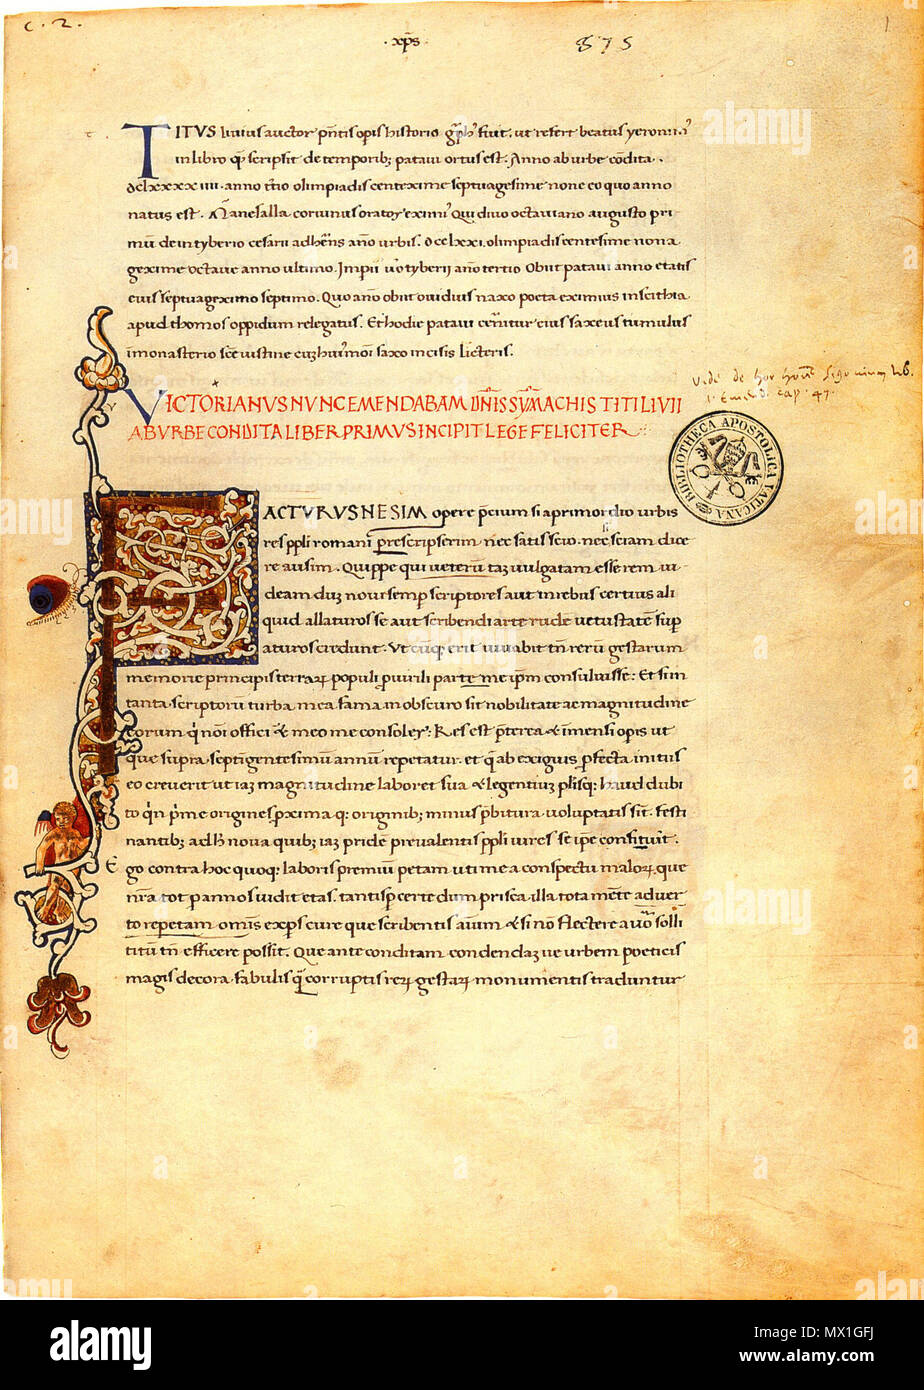 c. 2.
·xp̄s·
875
1
TITVS liuius auctor p̄ntis opis historio gͣph' fuit. ut refert beatus yeronim'
in libro q̄ scripsit de temporib; pataui ortus est. Anno ab urbe cōdita.
dclxxxxiiii. anno t̄tio olimpiadis centexime septuagesime none eo quo anno
natus est. Mānesalla coruinus orator eximi' Qui diuo octauiano augusto pri
mū dein tyberio cesari adhēns año urbis. dcclxxi. olimpiadis centesime nona
gexime octaue anno ultimo. Impii uō tyberii año tertio Obiit pataui anno etatis
eius septuageximo septimo. Quo año obiit ouidius naxo poeta eximius in scithia
apud thomos oppidum relegatus. Et hodie pataui cernitur eius saxeus tumulus
in monasterio scē iustine cuz hui'mōi saxo incisis licteris.
VICTORIANVS NVNC EMENDABAM DNIS SYMACHIS TITI LIVII
AB VRBE CONDITA LIBER PRIMVS INCIPIT LEGE FELICITER
Vide de hoc
cap. 47.
BIBLIOTHECA APOSTOLICA VATICANA
FACTVRVSNE SIM opere p̄cium si a primordio urbis
res ppli romani perscripserim nec satis scio. nec si sciam dice
re ausim. Quippe qui ueterū taz uulgatam esse rem ui
deam duz noui semp scriptores aut in rebus certius ali
quid allaturos se aut scribendi arte rudē uetustatē sup
aturos credunt. Vt cūq; erit iuuabit tn̄ rerū gestarum
memorie principis terraꝝ populi p uirili parte me ip̄m consuluisse: Et si in
tanta scriptorū turba mea fama in obscuro sit nobilitate ac magnitudine
eorum q̇ nōi offici & meo me consoler: Res est p̄terea & imensi opis ut
que supra septigentesimū annū repetatur. et q̄ ab exiguis pfecta initiis
eo creuerit ut iaz magnitudine laboret sua & legentiuz plisq: haud dubi
to q̇n p'me origines pxima q: originib; minus p̄bitura uoluptatis sīt. festi
nantib; ad h̄ noua quib; iaz pridē preualentis ppli uires se ipe consitiūt.
Ego contra hoc quoq: laboris premiū petam uti me a conspectu maloꝝ que
nr̄a tot p annos uidit etas. tantisp certe dum prisca illa tota mēte aduer
to repetam. omīs expers cure que scribentis aīum & si nō flectere a uō solli
titū tn̄ efficere possit. Que ante conditam condendaz ue urbem poeticis
magis decora fabulis q̄ corruptis reꝝ gestaꝝ monumentis traduntur
alamy
Image ID: MX1GFJ
www.alamy.com